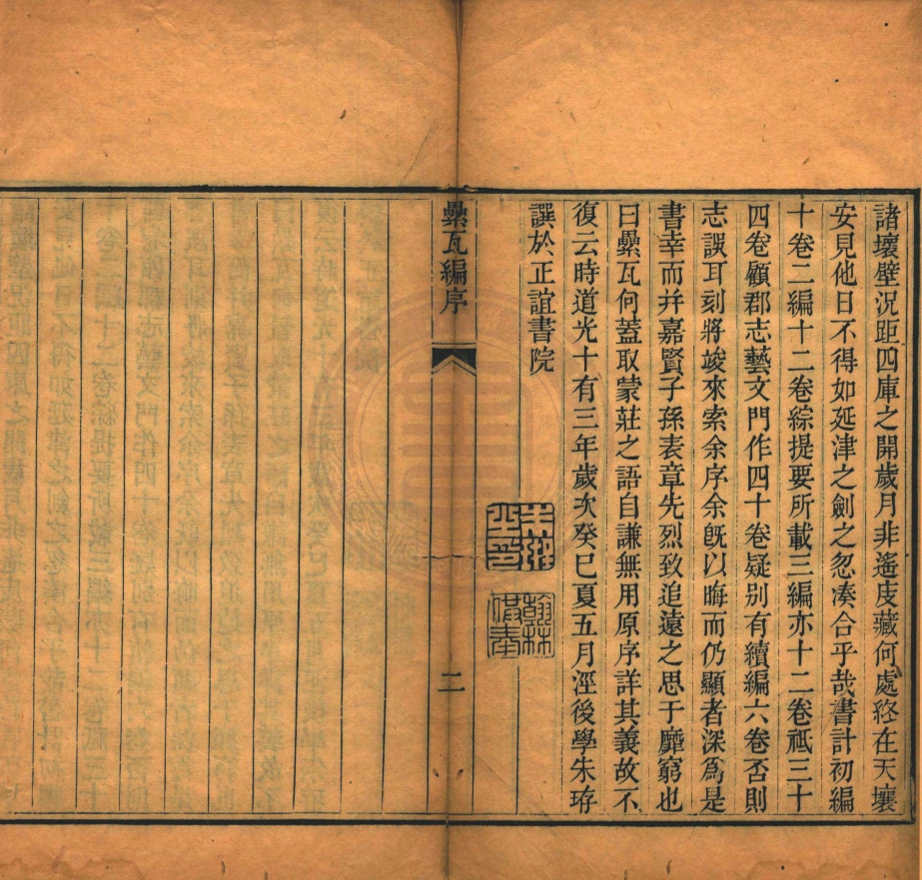 諸壞壁況距四庫之開歲月非遙庋藏何處終在天壤
安見他日不得如延津之劍之忽湊合乎哉書計初編
十卷二編十二卷綜提要所載三編亦十二卷祗三十
四卷顧郡志藝文門作四十卷疑別有續編六卷否則
志誤耳刻將竣來索余序余既以晦而仍顯者深為是
書幸而幷嘉賢子孫表章先烈致追遠之思于靡窮也
曰纍瓦何蓋取蒙莊之語自謙無用原序詳其義故不
復云時道光十有三年歲次癸巳夏五月涇後學朱珔
譔於正誼書院
朱珔之印
翰林供奉
纍瓦編序
二